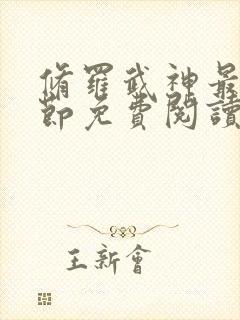 脩羅武神最
節免費閱讀
王新會